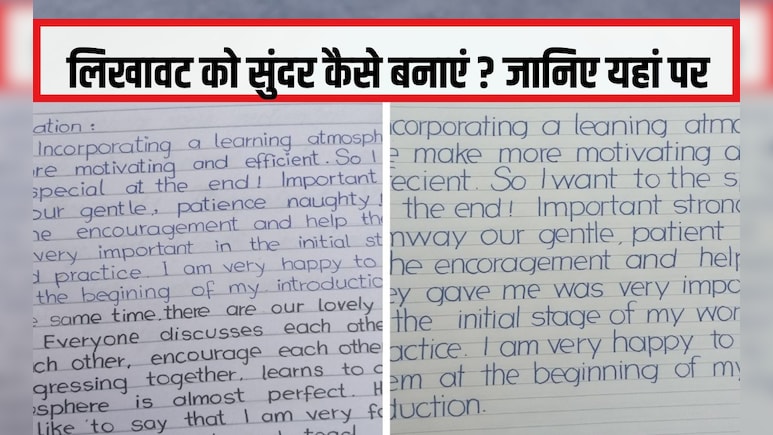 लिखावट को सुंदर कैसे बनाएं ? जानिए यहां पर
ation :
Incorporating a learning atmosph
re motivating and efficient. So I
special at the end! Important
our gentle, patience naughty!
he encouragement and help the
very important in the initial st
d practice. I am very happy to
the begining of my introduction
e same time. there are our lovely
Everyone discusses each othe
ch other, encourage each othe
gressing together, learns to
sphere is almost perfect. H
like to say that I am very fo
ncorporating a leaning atmo
e make more motivating a
ecient. So I want to the s
the end! Important stron
nway our gentle, patient
he encoragement and help
ey gave me was very impo
the initial stage of my wor
actice. I am very happy to
em at the beginning of my
duction.